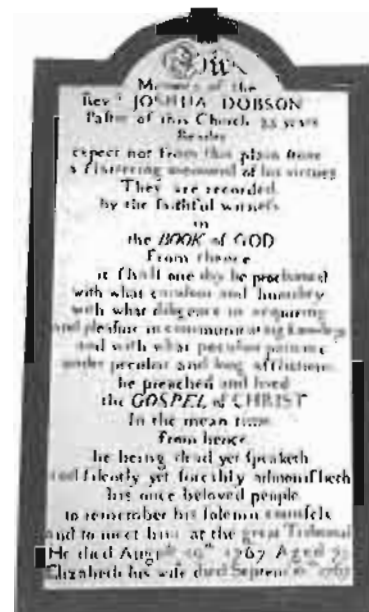 Memory of the
Rev.d JOSHUA DOBSON
Pastor of this Church 35 years
Reader
expect not from this plain stone
a flattering memorial of his virtues
They are recorded
by the faithful witness
in
the BOOK of GOD
From thence
it shall one day be proclaimed
with what candour and humility
with what diligence in acquiring
and pleasure in communicating knowledge
and with what peculiar patience
under peculiar and long afflictions
he preached and lived
the GOSPEL of CHRIST
In the mean time
from hence
he being dead yet speaketh
and silently yet forcibly admonisheth
his once beloved people
to remember his solemn counsels
and to meet him at the great Tribunal
He died Aug 1767 Aged
Elizabeth his wife died Septem